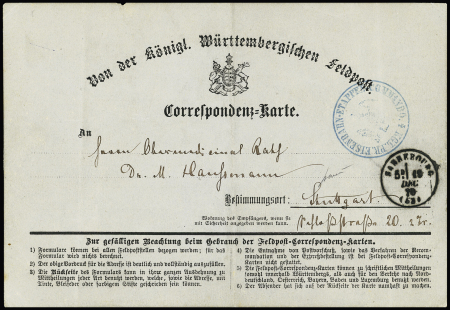 Von der Königl. Württembergischen Feldpost.
Correspondenz-Karte.
An
Herrn Obermedicinal Rath
Dr. M. Hausmann
Bestimmungsort: Stuttgart.
Wohnung des Empfängers, wenn sie
mit Sicherheit angegeben werden kann:
Schloßstraße 20. 2 Tr.
DEC
Zur gefälligen Beachtung beim Gebrauch der Feldpost-Correspondenz-Karten.
1) Formulare können bei allen Feldpoststellen bezogen werden; für das
Formular wird nichts berechnet.
2) Der obige Vordruck für die Adresse ist deutlich und vollständig auszufüllen.
3) Die Rückseite des Formulars kann in ihrer ganzen Ausdehnung zu
Mittheilungen jeder Art benützt werden, welche, sowie die Adresse, mit
Tinte, Bleifeder oder farbigem Stifte geschrieben sein können.
4) Die Entnahme von Postvorschuß, sowie das Verfahren der Recom-
mandation und der Expreßbestellung ist bei Feldpost-Correspondenz-
Karten nicht gestattet.
5) Die Feldpost-Correspondenz-Karten können zu schriftlichen Mittheilungen
sowohl innerhalb Württembergs, als auch für den Verkehr nach Nord-
deutschland, Oesterreich, Bayern, Baden und Luxemburg benützt werden.
6) Der Absender hat sich auf der Rückseite der Karte namhaft zu machen.